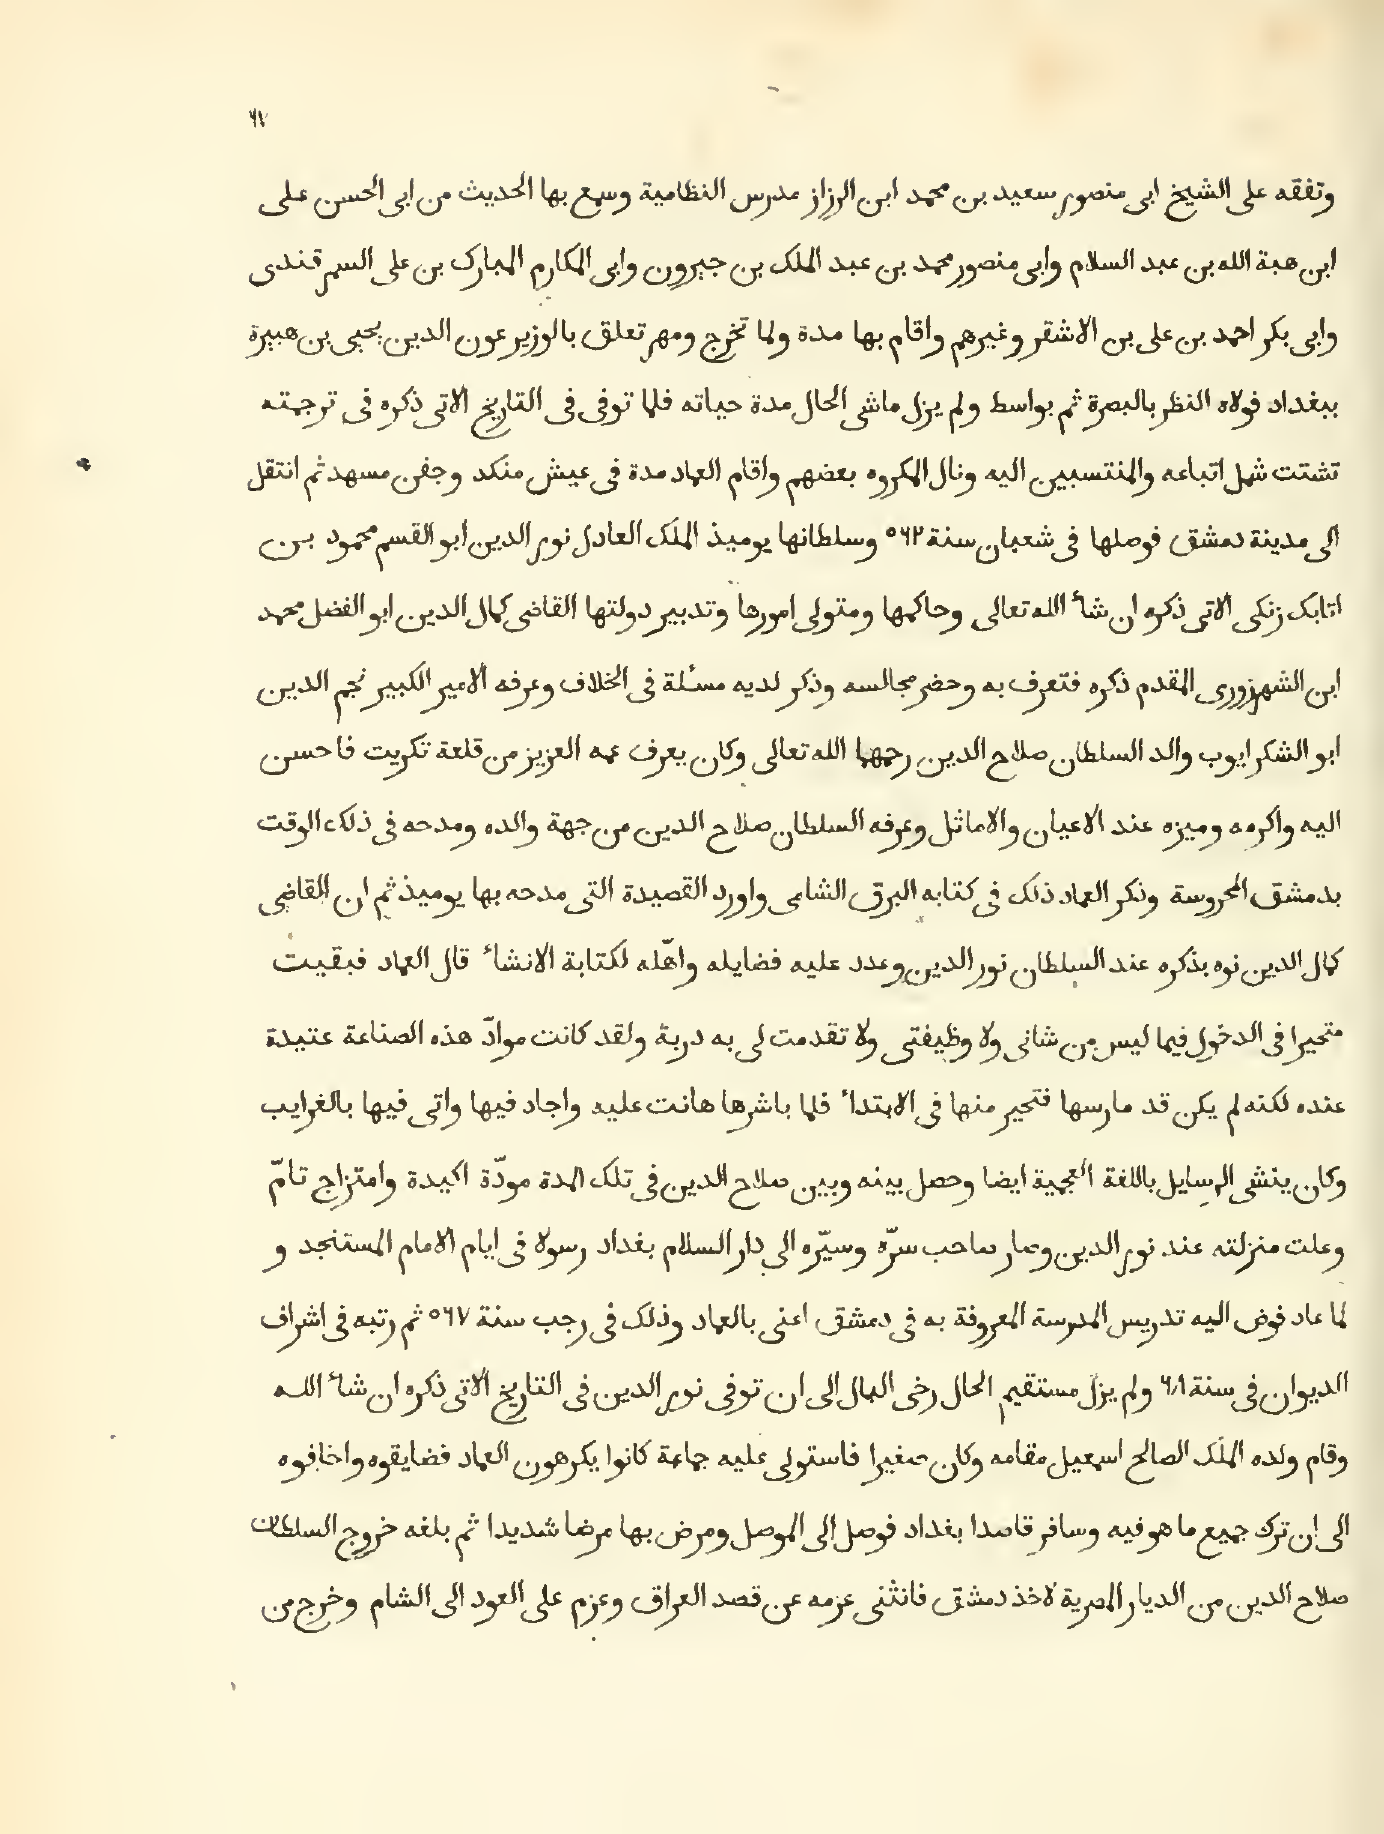 ٦٧
وتفقه على الشيخ ابى منصور سعيد بن محمد ابن الرزاز مدرس النظامية وسمع بها الحديث من ابى الحسن على
ابن هبة الله بن عبد السلام وابى منصور محمد بن عبد الملك بن جيرون وابى المكارم المبارك بن على السمرقندى
وابى بكر احمد بن على بن الاشقر وغيرهم واقام بها مدة ولما تخرج ومهر تعلق بالوزير عون الدين يحيى بن هبيرة
ببغداد فولاه النظر بالبصرة ثم بواسط ولم يزل ماشى الحال مدة حياته فلما توفى فى التاريخ الاتى ذكره فى ترجمته
تشتت شمل اتباعه والمنتسبين اليه ونال المكروه بعضهم واقام العماد مدة فى عيش منكد وجفن مسهد ثم انتقل
الى مدينة دمشق فوصلها فى شعبان سنة ٥٦٢ وسلطانها يوميذ الملك العادل نور الدين ابو القسم محمود بن
اتابك زنكى الاتى ذكره ان شأ الله تعالى وحاكمها ومتولى امورها وتدبير دولتها القاضى كمال الدين ابو الفضل محمد
ابن الشهرزورى المقدم ذكره فتعرف به وحضر مجالسه وذكر لديه مسئلة فى الخلاف وعرفه الامير الكبير نجم الدين
ابو الشكر ايوب والد السلطان صلاح الدين رحمهما الله تعالى وكان يعرف عمه العزيز من قلعة تكريت فاحسن
اليه واكرمه وميزه عند الاعيان والاماثل وعرفه السلطان صلاح الدين من جهة والده ومدحه فى ذلك الوقت
بدمشق المحروسة وذكر العماد ذلك فى كتابه البرق الشامى واورد القصيدة التى مدحه بها يوميذ ثم ان القاضى
كمال الدين نوه بذكره عند السلطان نور الدين وعدد عليه فضايله واهّله لكتابة الانشأ قال العماد فبقيت
متحيرا فى الدخول فيما ليس من شانى ولا وظيفتى ولا تقدمت لى به دربة ولقد كانت موادّ هذه الصناعة عتيدة
عنده لكنه لم يكن قد مارسها فتحير منها فى الابتدأ فلما باشرها هانت عليه واجاد فيها واتى فيها بالغرايب
وكان ينشى الرسايل باللغة العجمية ايضا وحصل بينه وبين صلاح الدين فى تلك المدة مودّة اكيدة وامتزاج تامّ
وعلت منزلته عند نور الدين وصار صاحب سرّه وسيّره الى دار السلام بغداد رسولا فى ايام الامام المستنجد و
لما عاد فوض اليه تدريس المدرسة المعروفة به فى دمشق اعنى بالعماد وذلك فى رجب سنة ٥٦٧ ثم رتبه فى اشراف
الديوان فى سنة ٦٨ ولم يزل مستقيم الحال رخى البال الى ان توفى نور الدين فى التاريخ الاتى ذكره ان شأ الله
وقام ولده الملك الصالح اسمعيل مقامه وكان صغيرا فاستولى عليه جماعة كانوا يكرهون العماد فضايقوه واخافوه
الى ان ترك جميع ما هو فيه وسافر قاصدا بغداد فوصل الى الموصل ومرض بها مرضا شديدا ثم بلغه خروج السلطان
صلاح الدين من الديار المصرية لاخذ دمشق فانثنى عزمه عن قصد العراق وعزم على العود الى الشام وخرج من